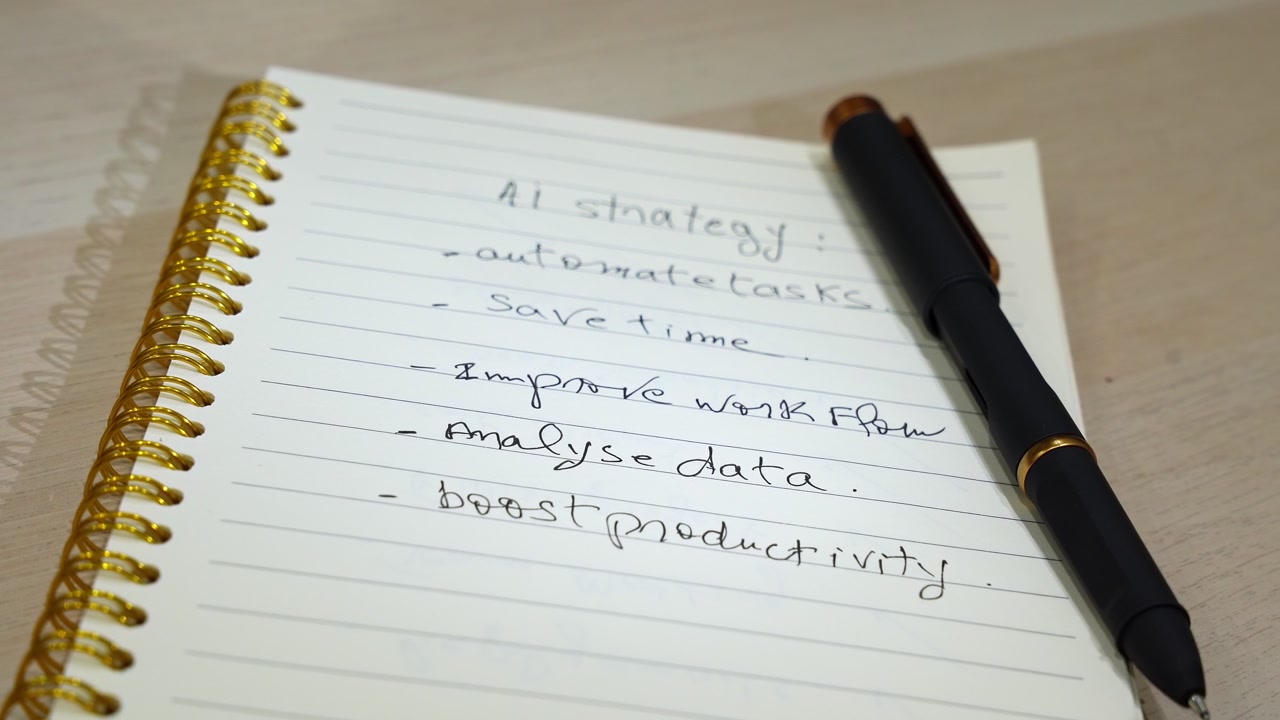 Ai strategy :
- automate tasks.
- Save time.
- Improve work Flow
- Analyse data.
- boost productivity.